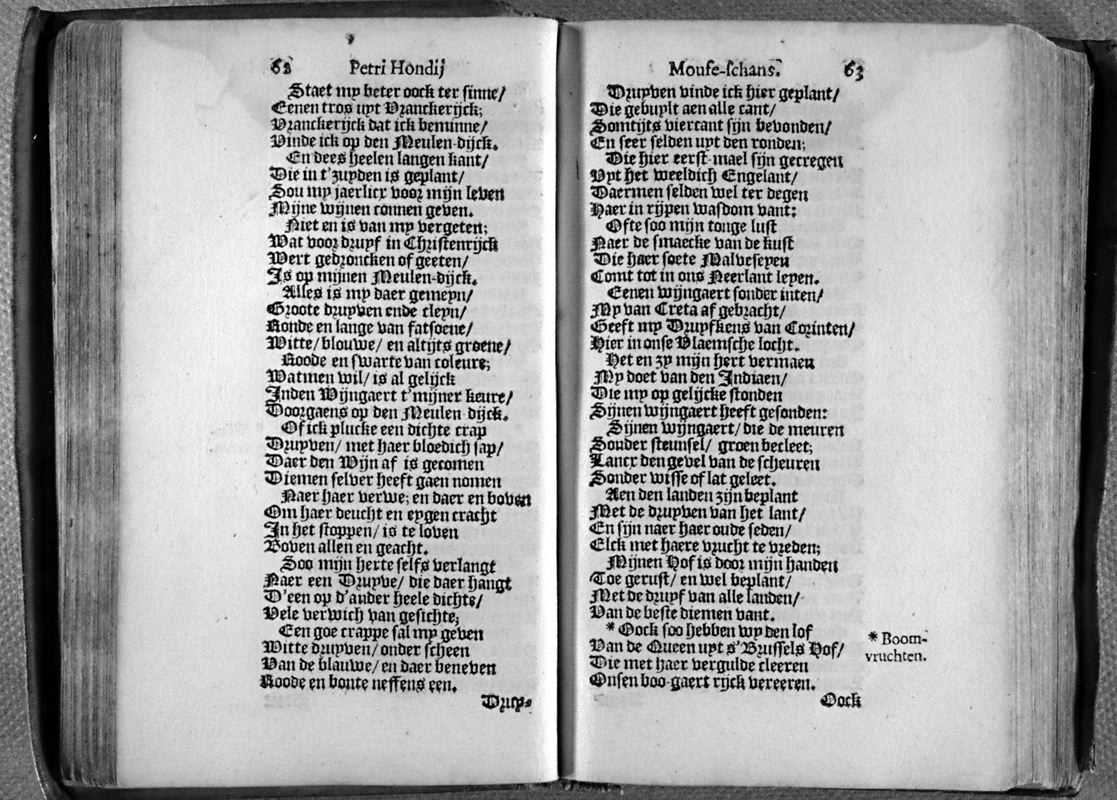 62 Petri Hondij
Staet my beter oock ter sinne/
Eenen tros uyt Vranckerijck;
Vranckerijck dat ick beminne/
Vinde ick op den Meulen-dijck.
En dees heelen langen kant/
Die in t'zuyden is geplant/
Sou my jaerlicx voor mijn leven
Mijne wijnen connen geven.
Niet en is van my vergeten;
Wat voor druyf in Christenrijck
Wert gedroncken of geeten/
Is op mijnen Meulen-dijck.
Alles is my daer gemeyn/
Groote druyven ende cleyn/
Ronde en lange van fatsoene/
Witte/ blouwe/ en altijts groene/
Roode en swarte van coleure;
Watmen wil/ is al gelijck
Inden Wijngaert t'mijner keure/
Doorgaens op den Meulen-dijck.
Of ick plucke een dichte crap
Druyven/ met haer bloedich sap/
Daer den Wijn af is gecomen
Diemen selver heeft gaen nomen
Naer haer verwe; en daer en boven
Om haer deucht en eygen cracht
In het stoppen/ is te loven
Boven allen en geacht.
Soo mijn herte selfs verlangt
Naer een Druyve/ die daer hangt
D'een op d'ander heele dichte/
Vele verwich van gesichte;
Een goe crappe sal my geven
Witte druyven/ onder scheen
Van de blauwe/ en daer beneven
Roode en bonte neffens een.
Druy-
Mouſe-ſchans. 63
Druyven vinde ick hier geplant/
Die gebuylt aen alle cant/
Somtijts viercant sijn bevonden/
En seer selden uyt den ronden;
Die hier eerst-mael sijn gecregen
Uyt het weeldich Engelant/
Daermen selden wel ter degen
Haer in rijpen wasdom vant:
Ofte soo mijn tonge lust
Naer de smaecke van de kust
Die haer soete Malveseyen
Comt tot in ons Neerlant leyen.
Eenen wijngaert sonder inten/
My van Creta af gebracht/
Geeft my Druyfkens van Corinten/
Hier in onse Vlaemsche locht.
Het en zy mijn hert vermaen
My doet van den Indiaen/
Die my op gelijcke stonden
Sijnen wijngaert heeft gesonden:
Sijnen wijngaert/ die de meuren
Sonder steunsel/ groen becleet;
Lancx den gevel van de scheuren
Sonder wisse of lat geleet.
Aen den landen zijn beplant
Met de druyven van het lant/
En sijn naer haer oude seden/
Elck met haere vrucht te vreden;
Mijnen Hof is door mijn handen
Toe gerust/ en wel beplant/
Met de druyf van alle landen/
Van de beste diemen vant.
* Oock soo hebben wy den lof
Van de Queen uyt s'Brussels Hof/
Die met haer vergulde cleeren
Onsen boo-gaert rijck vereeren.
* Boom-
vruchten.
Oock